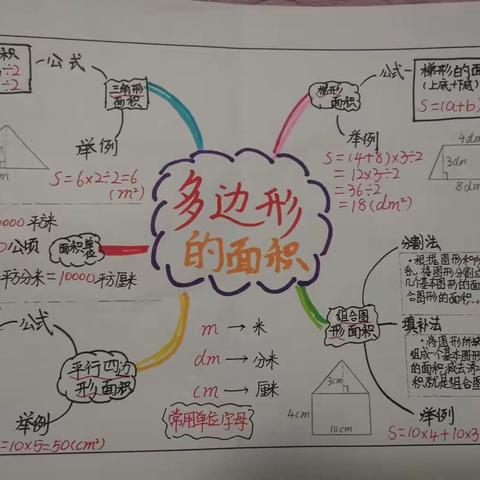 积
÷2
÷2
公式
三角形
面积
举例
m
S=6×2÷2=6
(m²)
梯形
面积
公式
梯形的面
(上底+下底)
S=(a+b)
举例
S=(4+8)×3÷2
=12×3÷2
=36÷2
=18(dm²)
4dm
3dm
8dm
多边形
的面积
0000平方米
公顷
平方分米=10000平方厘米
面积单位
公式
平行四边
形面积
举例
=10×5=50(cm²)
m → 米
dm → 分米
cm → 厘米
常用单位字母
组合图
形面积
分割法
·根据图形和
系,将图形分割成
几个基本图形的面
合图形的面积。
填补法
·将图形所缺
组成一个基本图形
的面积,减去添
积就是组合图
举例
S=10×4+10×3
3cm
4cm
10cm